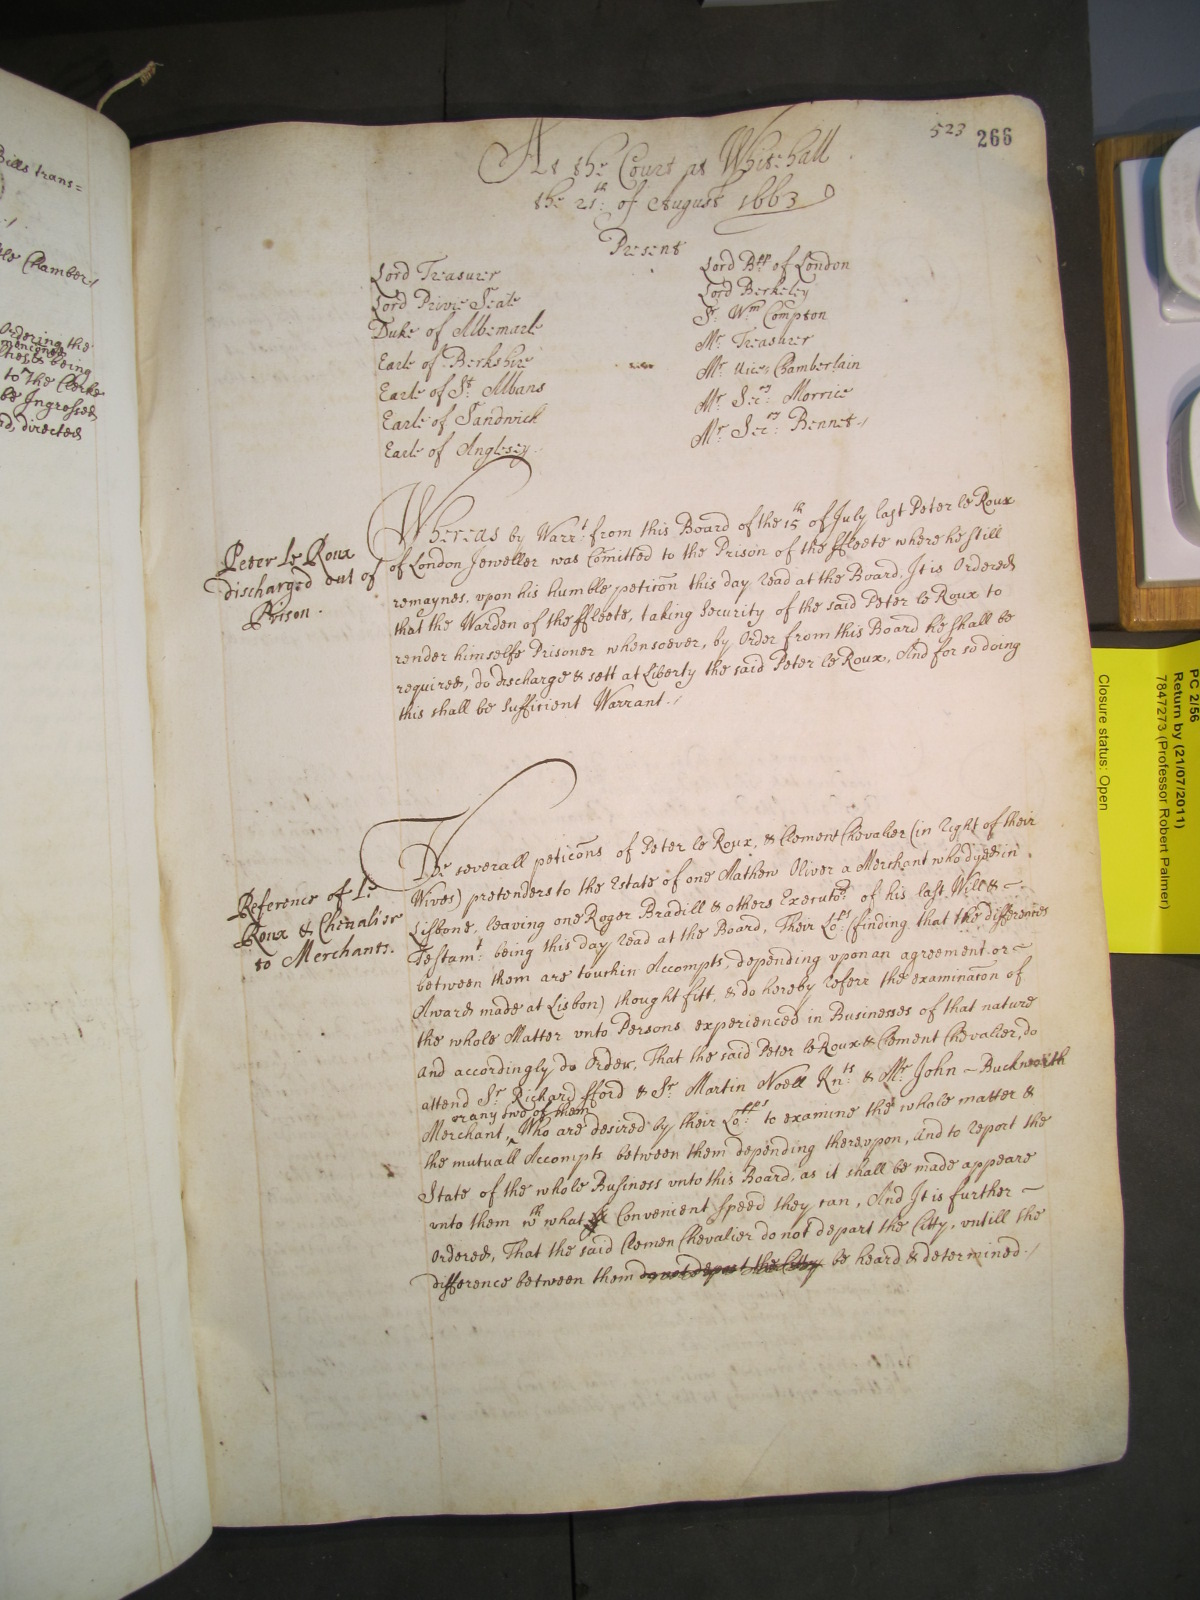 Bills trans=
Chamber
Ordering the
mentioned
being
to the Clerke
be Ingrossed
directed
523 266
At the Court at Whitehall
the 21th: of August 1663
Present
Lord Treasurer
Lord Privie Seale
Duke of Albemarle
Earle of Berkshire
Earle of St. Albans
Earle of Sandwich
Earle of Anglesey
Lord Bpp of London
Lord Berkeley
Sr. Wm Compton
Mr Treasurer
Mr Vice: Chamberlain
Mr Secry: Morrice
Mr Secry: Bennet./
Peter Le Roux
discharged out of
Prison.
Whereas by Warrt: from this Board of the 15th of July last Peter le Roux
of London Jeweller was Comitted to the Prison of the ffleete where he still
remaynes, upon his humble peticon this day read at the Board, It is Ordered
that the Warden of the ffleete, taking Security of the said Peter le Roux to
render himselfe Prisoner whensoever, by Order from this Board he shall be
required, do discharge & sett at Liberty the said Peter le Roux, And for so doing
this shall be Sufficient Warrant./
Reference of Le
Roux & Chevalier
to Merchants.
The severall peticons of Peter le Roux, & Clement Chevalier (in right of their
Wives) pretenders to the Estate of one Mathew Oliver a Merchant who dyed in
Lisbone, leaving one Roger Bradill & others Executors: of his last Will & ~
Testamt: being this day read at the Board, Their Lopps: (finding that the differences
between them are touchin Accompts, depending vpon an agreement or ~
Award made at Lisbon) thought fitt, & do hereby referr the examinacon of
the whole Matter vnto Persons experienced in Businesses of that nature
and accordingly do Order, That the said Peter le Roux & Clement Chevalier, do
attend Sr. Richard fford & Sr. Martin Noell Knts: & Mr. John ~ Buckworth
or any two of them
Merchant, ^ Who are desired by their Lopps: to examine the whole matter &
the mutuall Accompts between them depending therevpon, and to report the
State of the whole Business vnto this Board, as it shall be made appeare
vnto them wth what Convenient speed they can, And It is further ~
Ordered, That the said Clemen Chevalier do not depart the Citty, vntill the
difference between them do not depart the Citty be heard & determined./
PC 2/56
Return by (21/07/2011)
7847273 (Professor Robert Palmer)
Closure status: Open